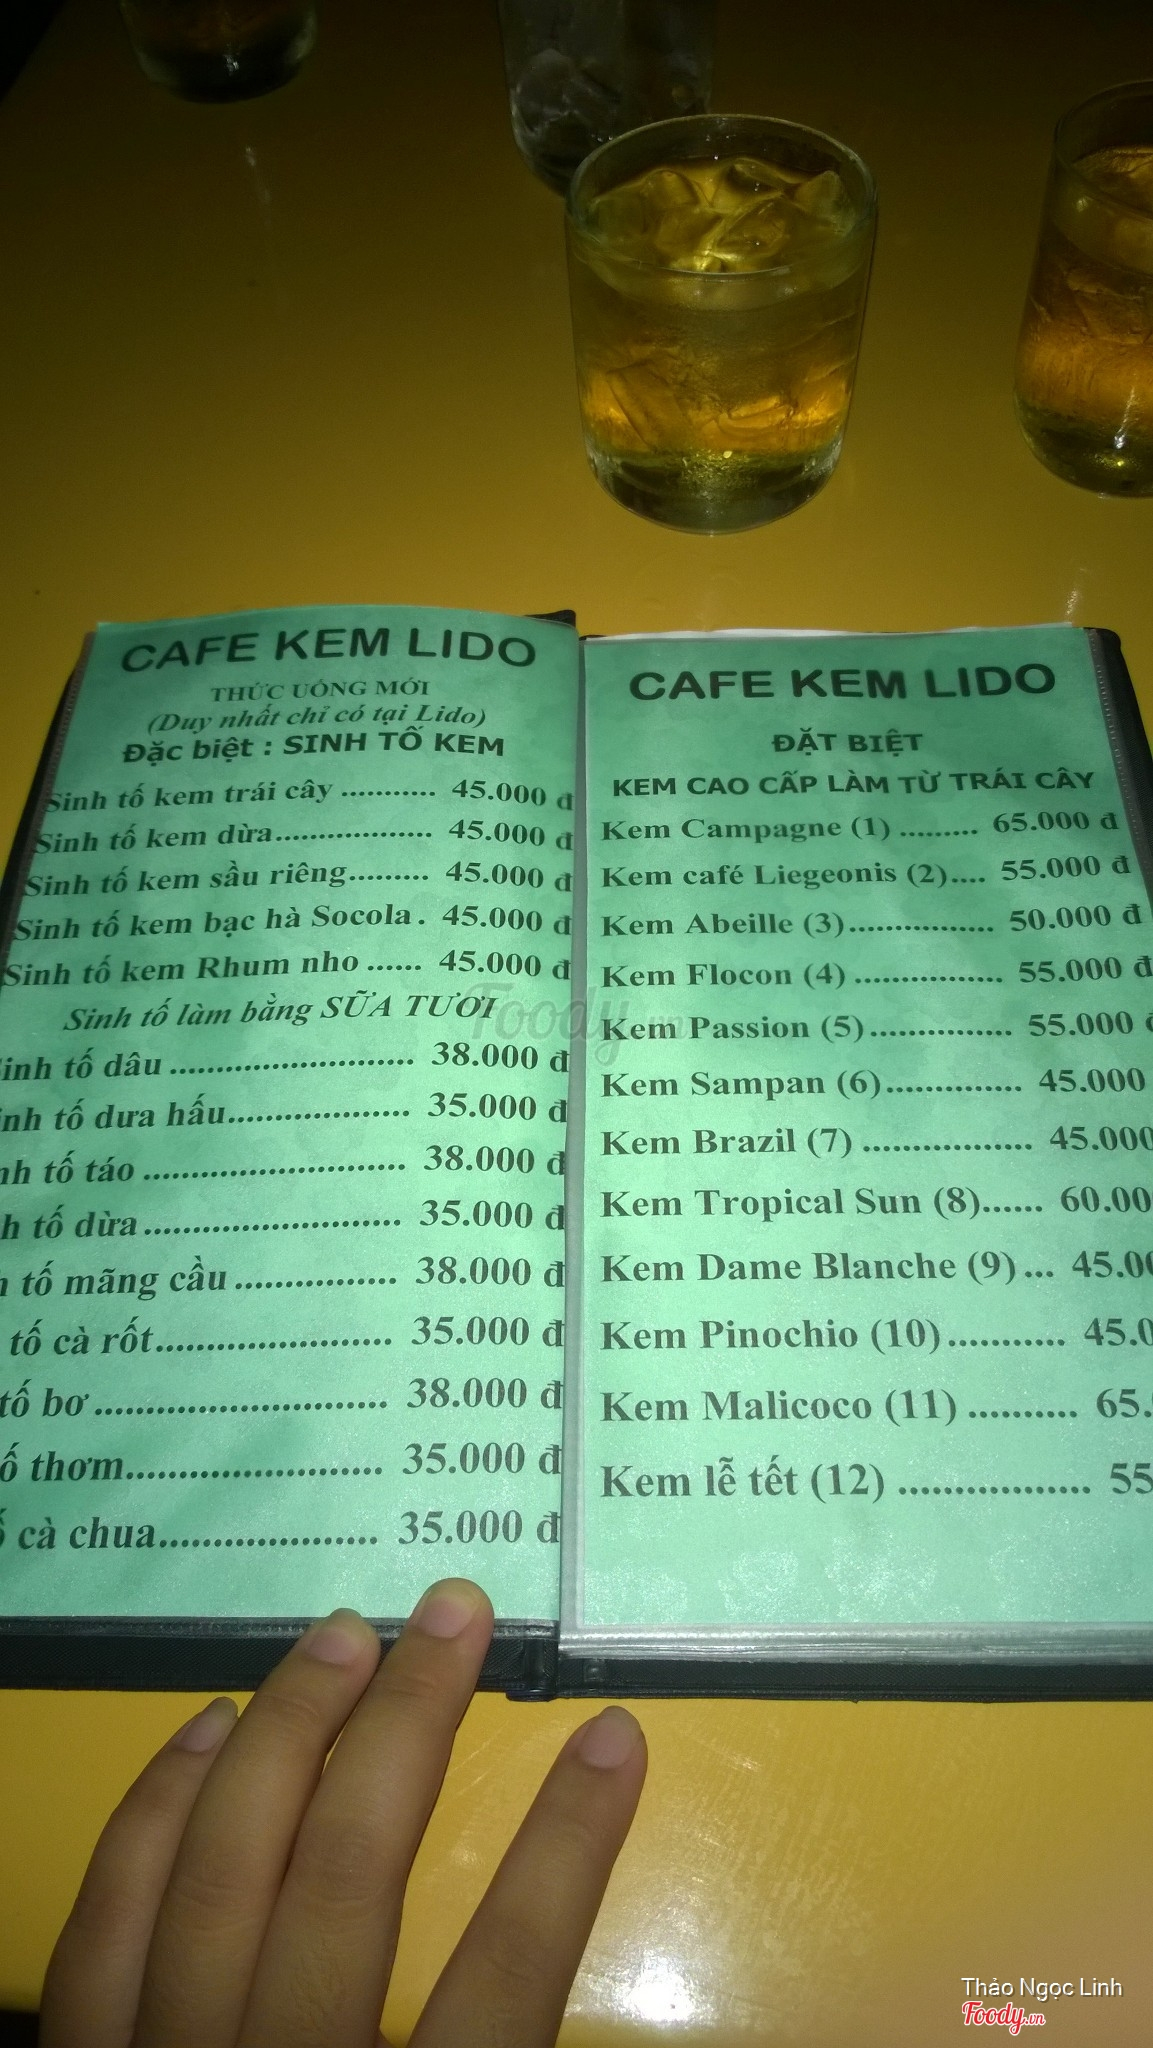 CAFE KEM LIDO
THỨC UỐNG MỚI
(Duy nhất chỉ có tại Lido)
Đặc biệt : SINH TỐ KEM
Sinh tố kem trái cây ........... 45.000 đ
Sinh tố kem dừa.................. 45.000 đ
Sinh tố kem sầu riêng......... 45.000 đ
Sinh tố kem bạc hà Socola . 45.000 đ
Sinh tố kem Rhum nho ...... 45.000 đ
Sinh tố làm bằng SỮA TƯƠI
inh tố dâu ............................ 38.000 đ
inh tố dưa hấu..................... 35.000 đ
nh tố táo .............................. 38.000 đ
h tố dừa ............................. 35.000 đ
tố mãng cầu ................. 38.000 đ
tố cà rốt......................... 35.000 đ
tố bơ .............................. 38.000 đ
ố thơm.......................... 35.000 đ
ố cà chua...................... 35.000 đ
CAFE KEM LIDO
ĐẶT BIỆT
KEM CAO CẤP LÀM TỪ TRÁI CÂY
Kem Campagne (1) ......... 65.000 đ
Kem café Liegeonis (2).... 55.000 đ
Kem Abeille (3)................. 50.000 đ
Kem Flocon (4) ................. 55.000 đ
Kem Passion (5)................ 55.000 đ
Kem Sampan (6)............... 45.000
Kem Brazil (7) .................. 45.000
Kem Tropical Sun (8)...... 60.00
Kem Dame Blanche (9) ... 45.00
Kem Pinochio (10)........... 45.0
Kem Malicoco (11) .......... 65.
Kem lễ tết (12) ................. 55
Foody.vn
Thảo Ngọc Linh
Foody.vn